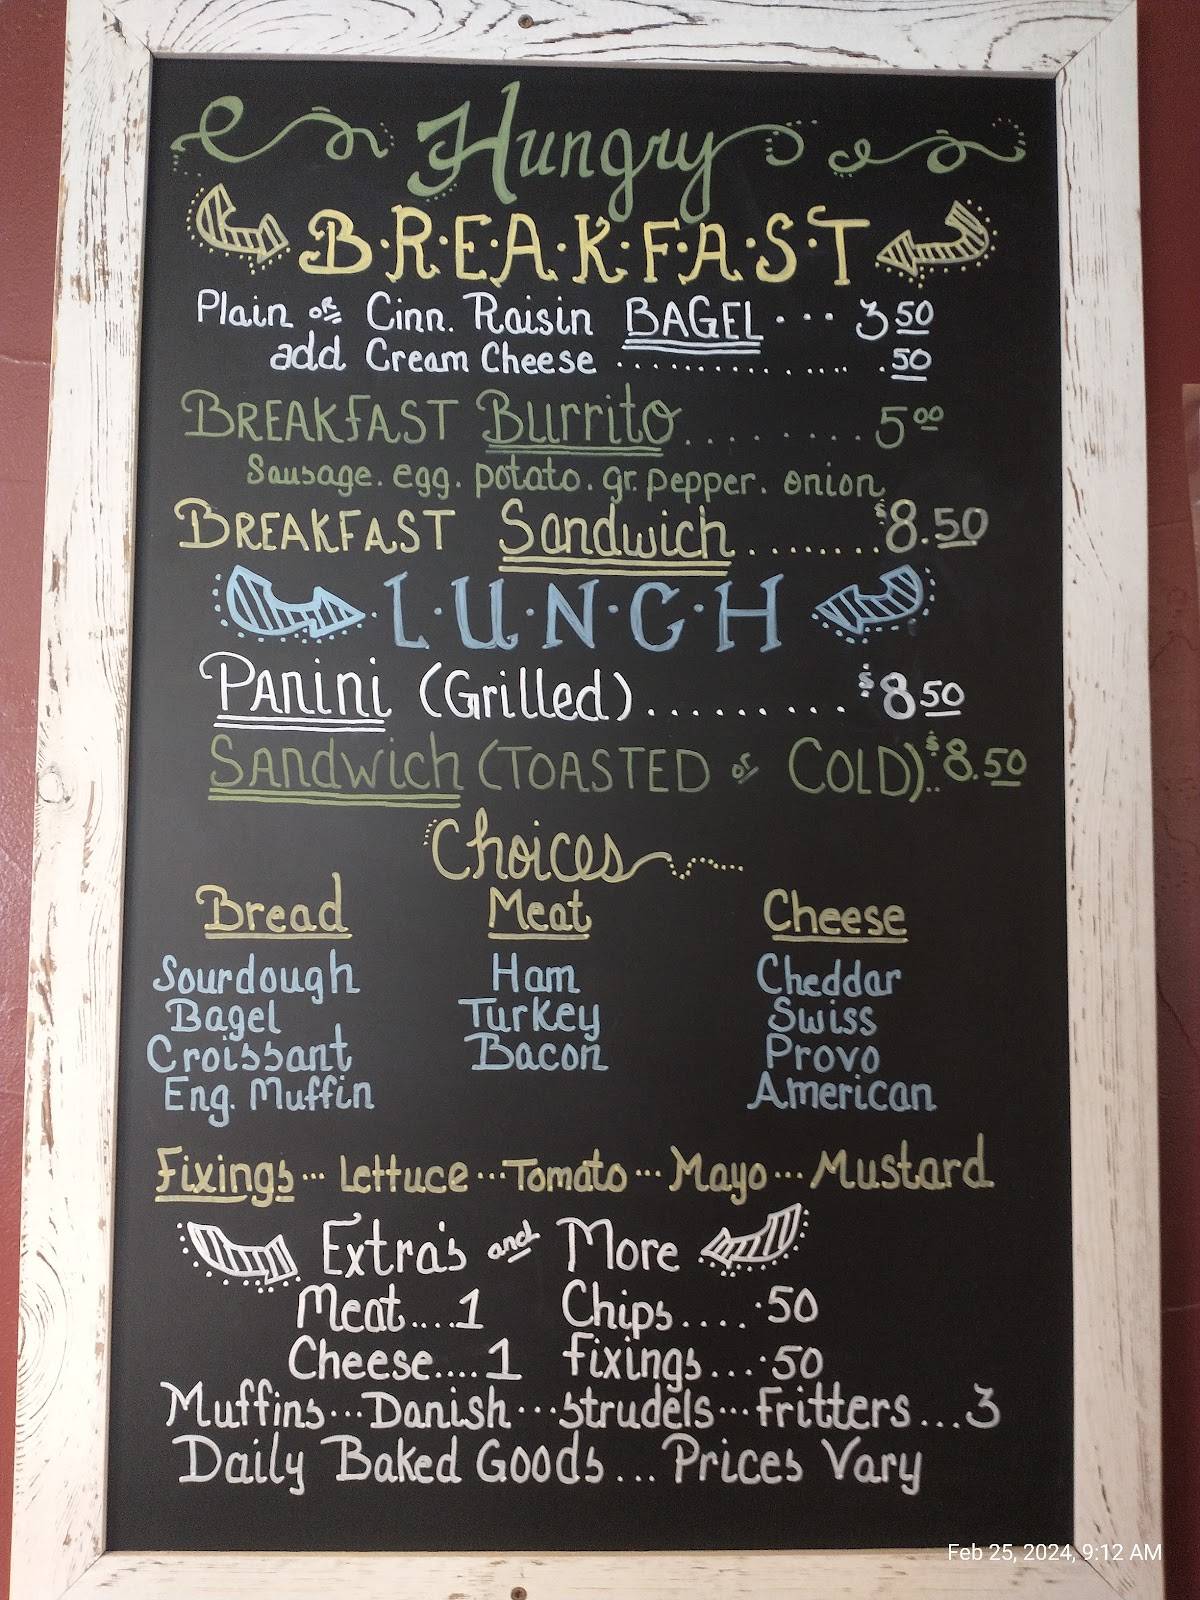 Hungry
B·R·E·A·K·F·A·S·T
Plain or Cinn. Raisin BAGEL ... 3 50
add Cream Cheese ................ .50
BREAKFAST Burrito......... 5 00
Sausage. egg. potato. gr. pepper. onion
BREAKFAST Sandwich........ $8.50
L·U·N·C·H
PAnini (Grilled)......... $8 50
SAndwich (TOASTED or COLD).. $8.50
Choices
Bread Meat Cheese
Sourdough Ham Cheddar
Bagel Turkey Swiss
Croissant Bacon Provo
Eng. Muffin American
Fixings ... Lettuce ... Tomato ... Mayo ... Mustard
Extra's and More
Meat....1 Chips.... .50
Cheese....1 Fixings... .50
Muffins...Danish...Strudels...Fritters...3
Daily Baked Goods... Prices Vary
Feb 25, 2024, 9:12 AM